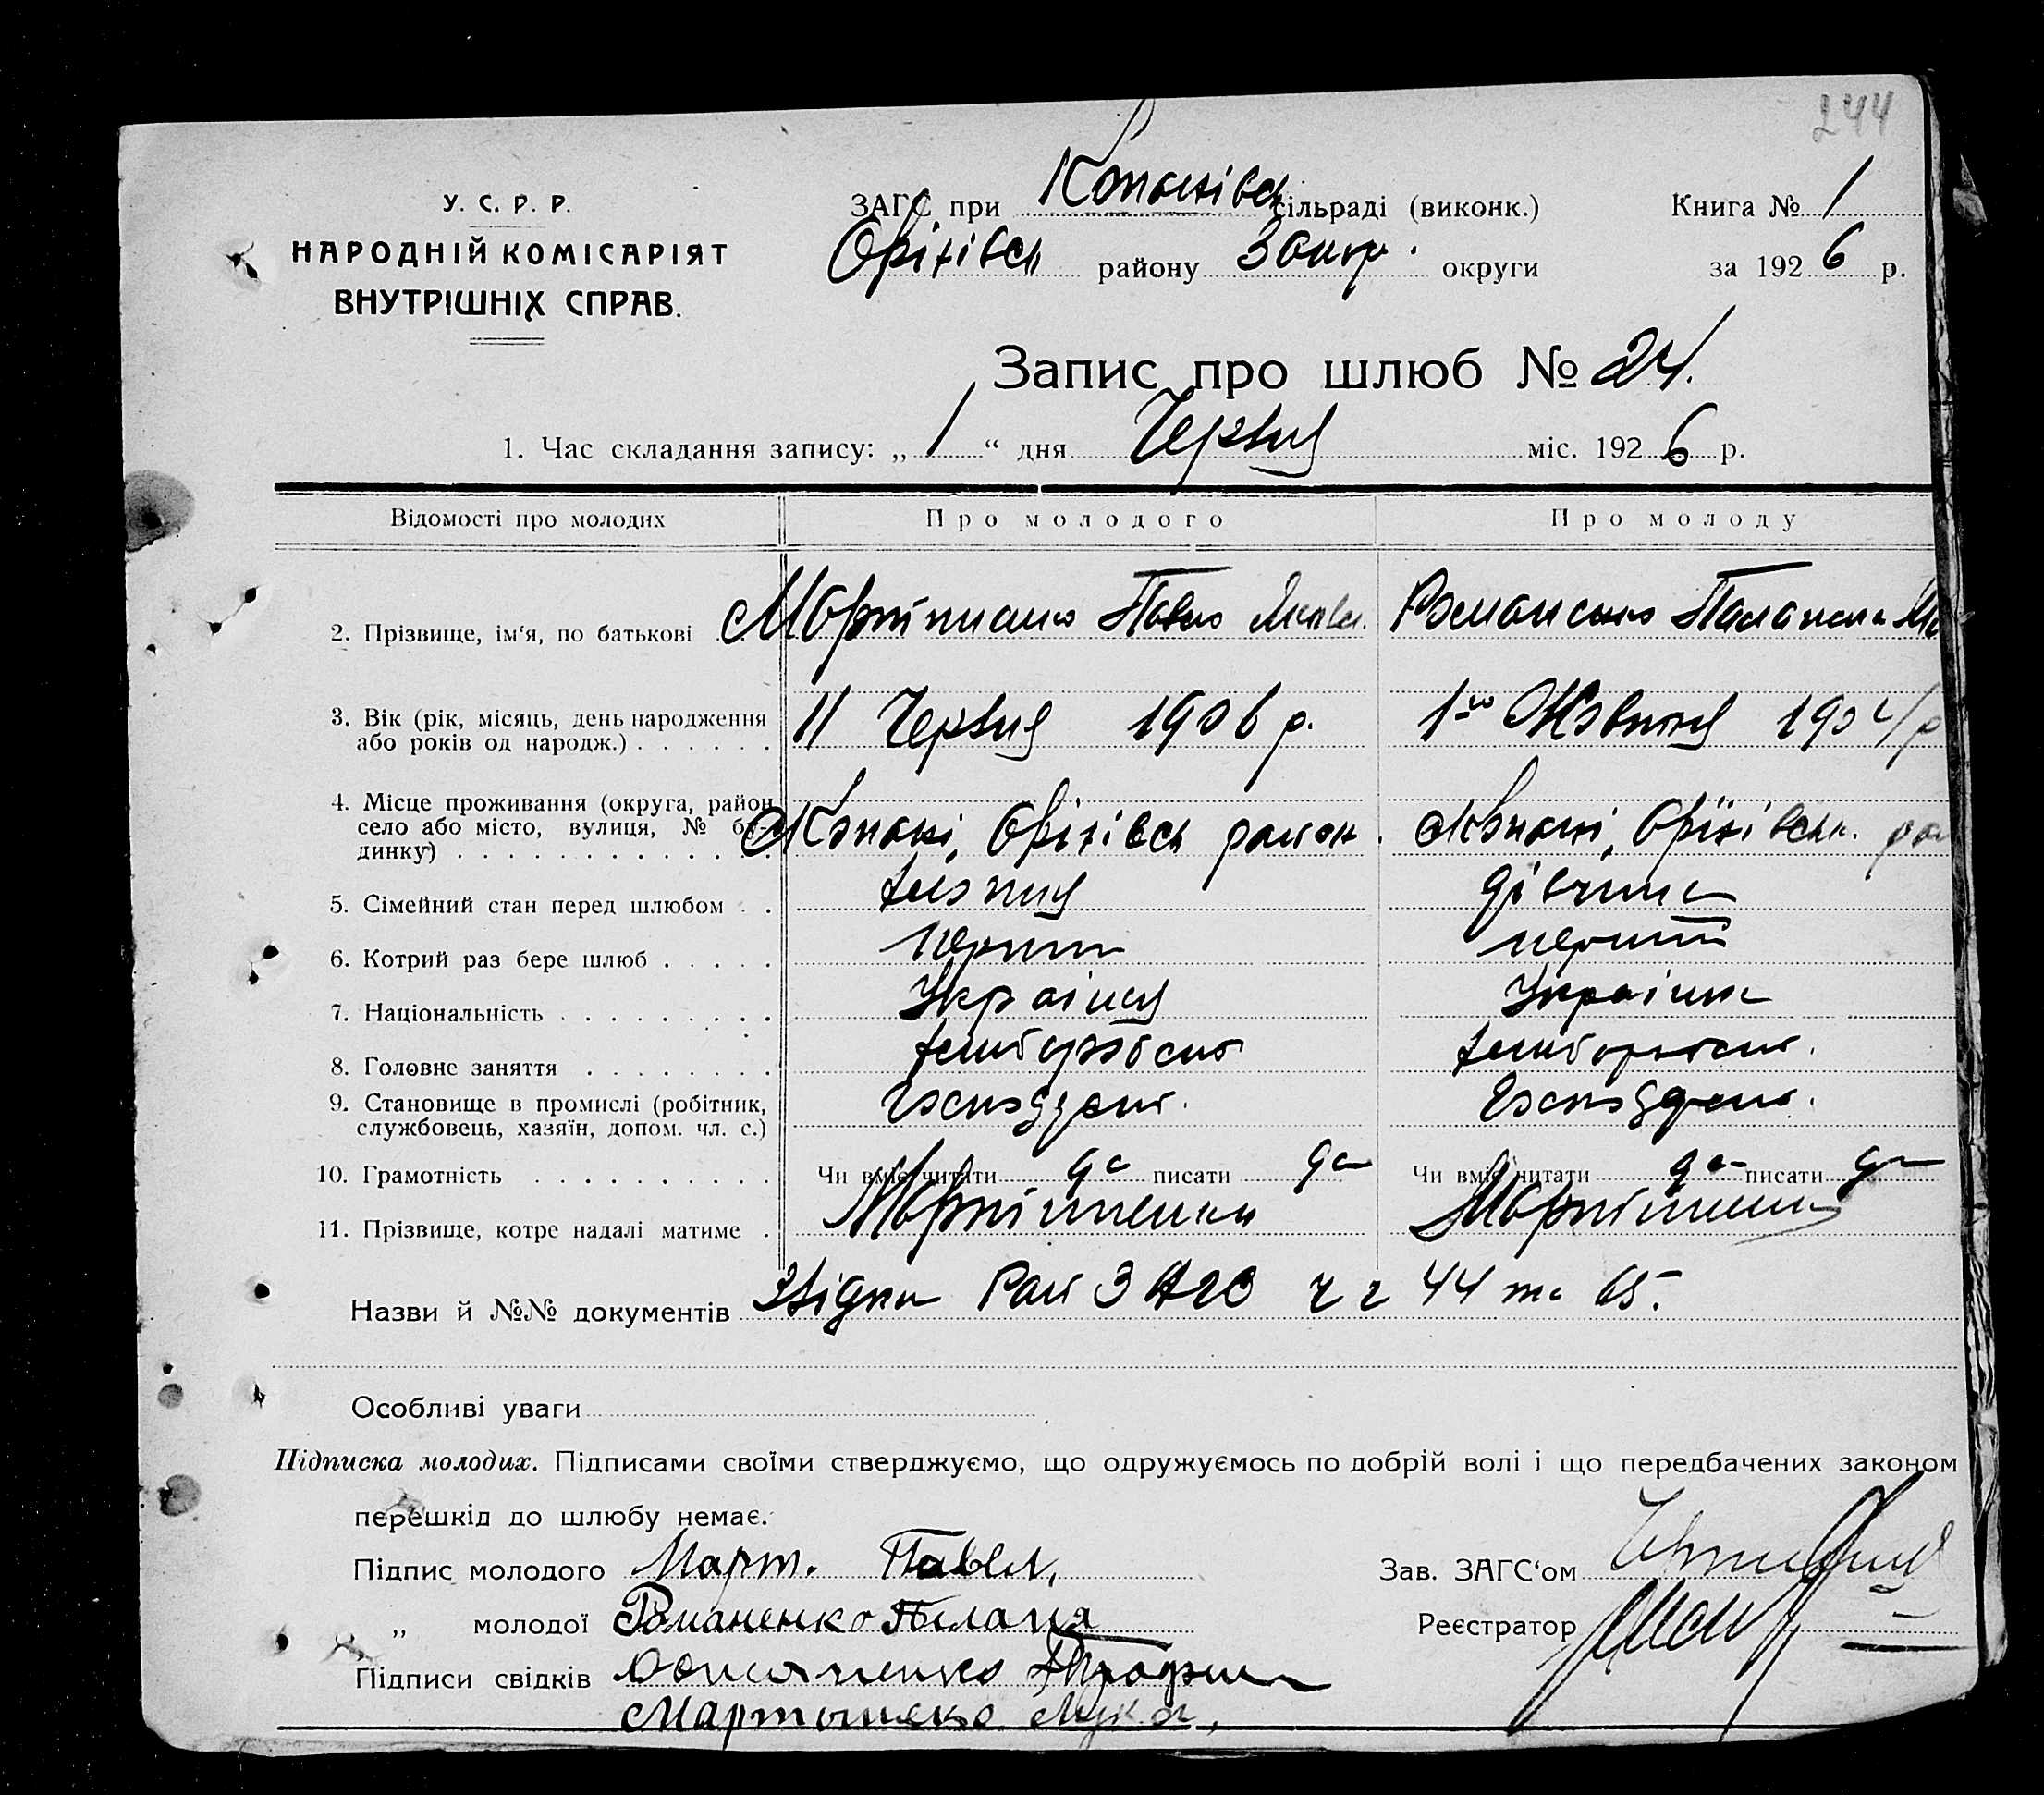 244
У. С. Р. Р.
НАРОДНІЙ КОМІСАРІЯТ
ВНУТРІШНІХ СПРАВ.
ЗАГС при Копанівськ сільраді (виконк.) Книга № 1
Оріхівськ району Запор. округи за 1926 р.
Запис про шлюб № 24.
1. Час складання запису: „ 1 “ дня Червня міс. 1926 р.
Відомості про молодих Про молодого Про молоду
2. Прізвище, ім‘я, по батькові Павло Романенко
3. Вік (рік, місяць, день народження
або років од народж.) 11 Червня 1906 р. 1го Жовтня 1904 р
4. Місце проживання (округа, район
село або місто, вулиця, № бу-
динку) Копані, Оріхівськ район. Копані, Оріхівськ. рай
5. Сімейний стан перед шлюбом дівчина
6. Котрий раз бере шлюб перший перший
7. Національність Українец Українка
8. Головне заняття хліборобство хліборобство.
9. Становище в промислі (робітник,
службовець, хазяїн, допом. чл. с.)
10. Грамотність Чи вміє читати да писати да Чи вміє читати да писати да
11. Прізвище, котре надалі матиме Мартишенки
Назви й №№ документів Рай ЗАГС 44 та 65.
Особливі уваги
Підписка молодих. Підписами своїми стверджуємо, що одружуємось по добрій волі і що передбачених законом
перешкід до шлюбу немає.
Підпис молодого Март. Павел, Зав. ЗАГС‘ом
„ молодої Романенко Пелагия Реєстратор
Підписи свідків Трофим
Мартошенко Лука,